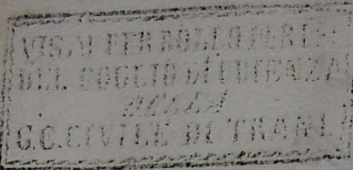 VISTO PER BOLLO
DEL FOGLIO D'UDIENZA
DELLA
G.C. CIVILE DI TRANI